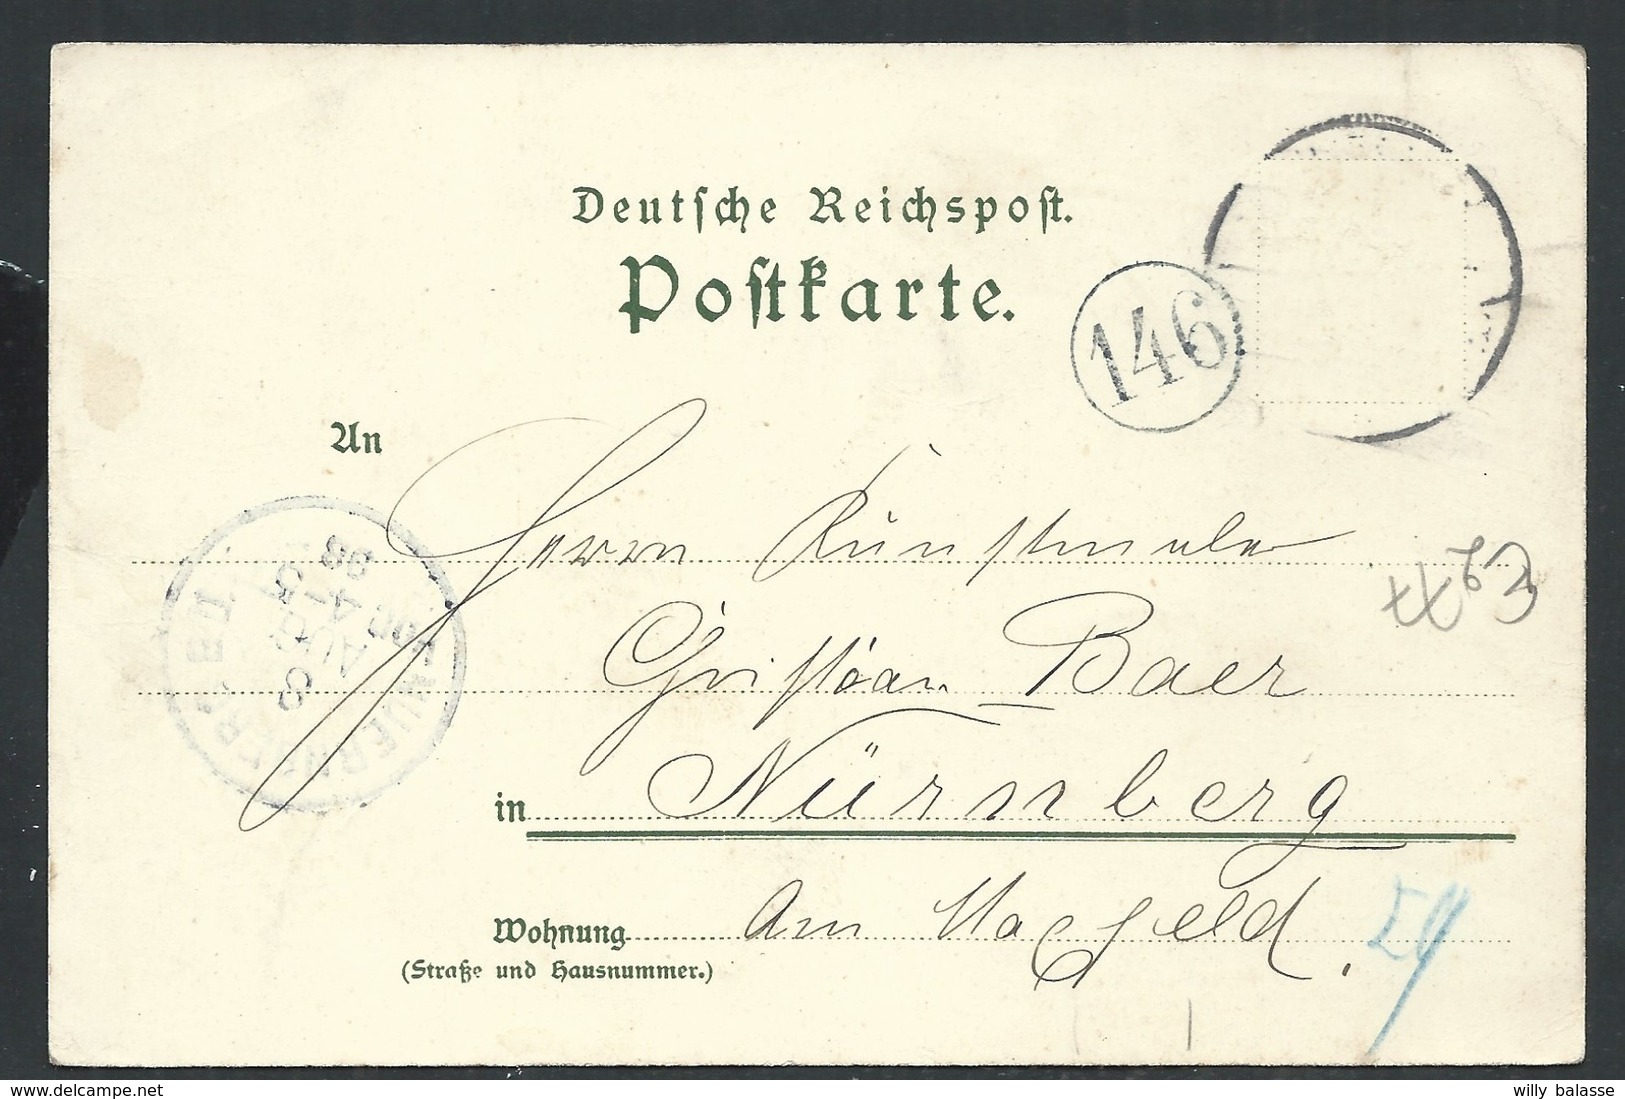 Deutsche Reichspost.
Postkarte.
146
An
Herrn Kunstmaler
Christian Baer
in Nürnberg
Wohnung Am Maxfeld.
(Straße und Hausnummer.)
NUERNBERG
AUG
delcampe.net
willy balasse